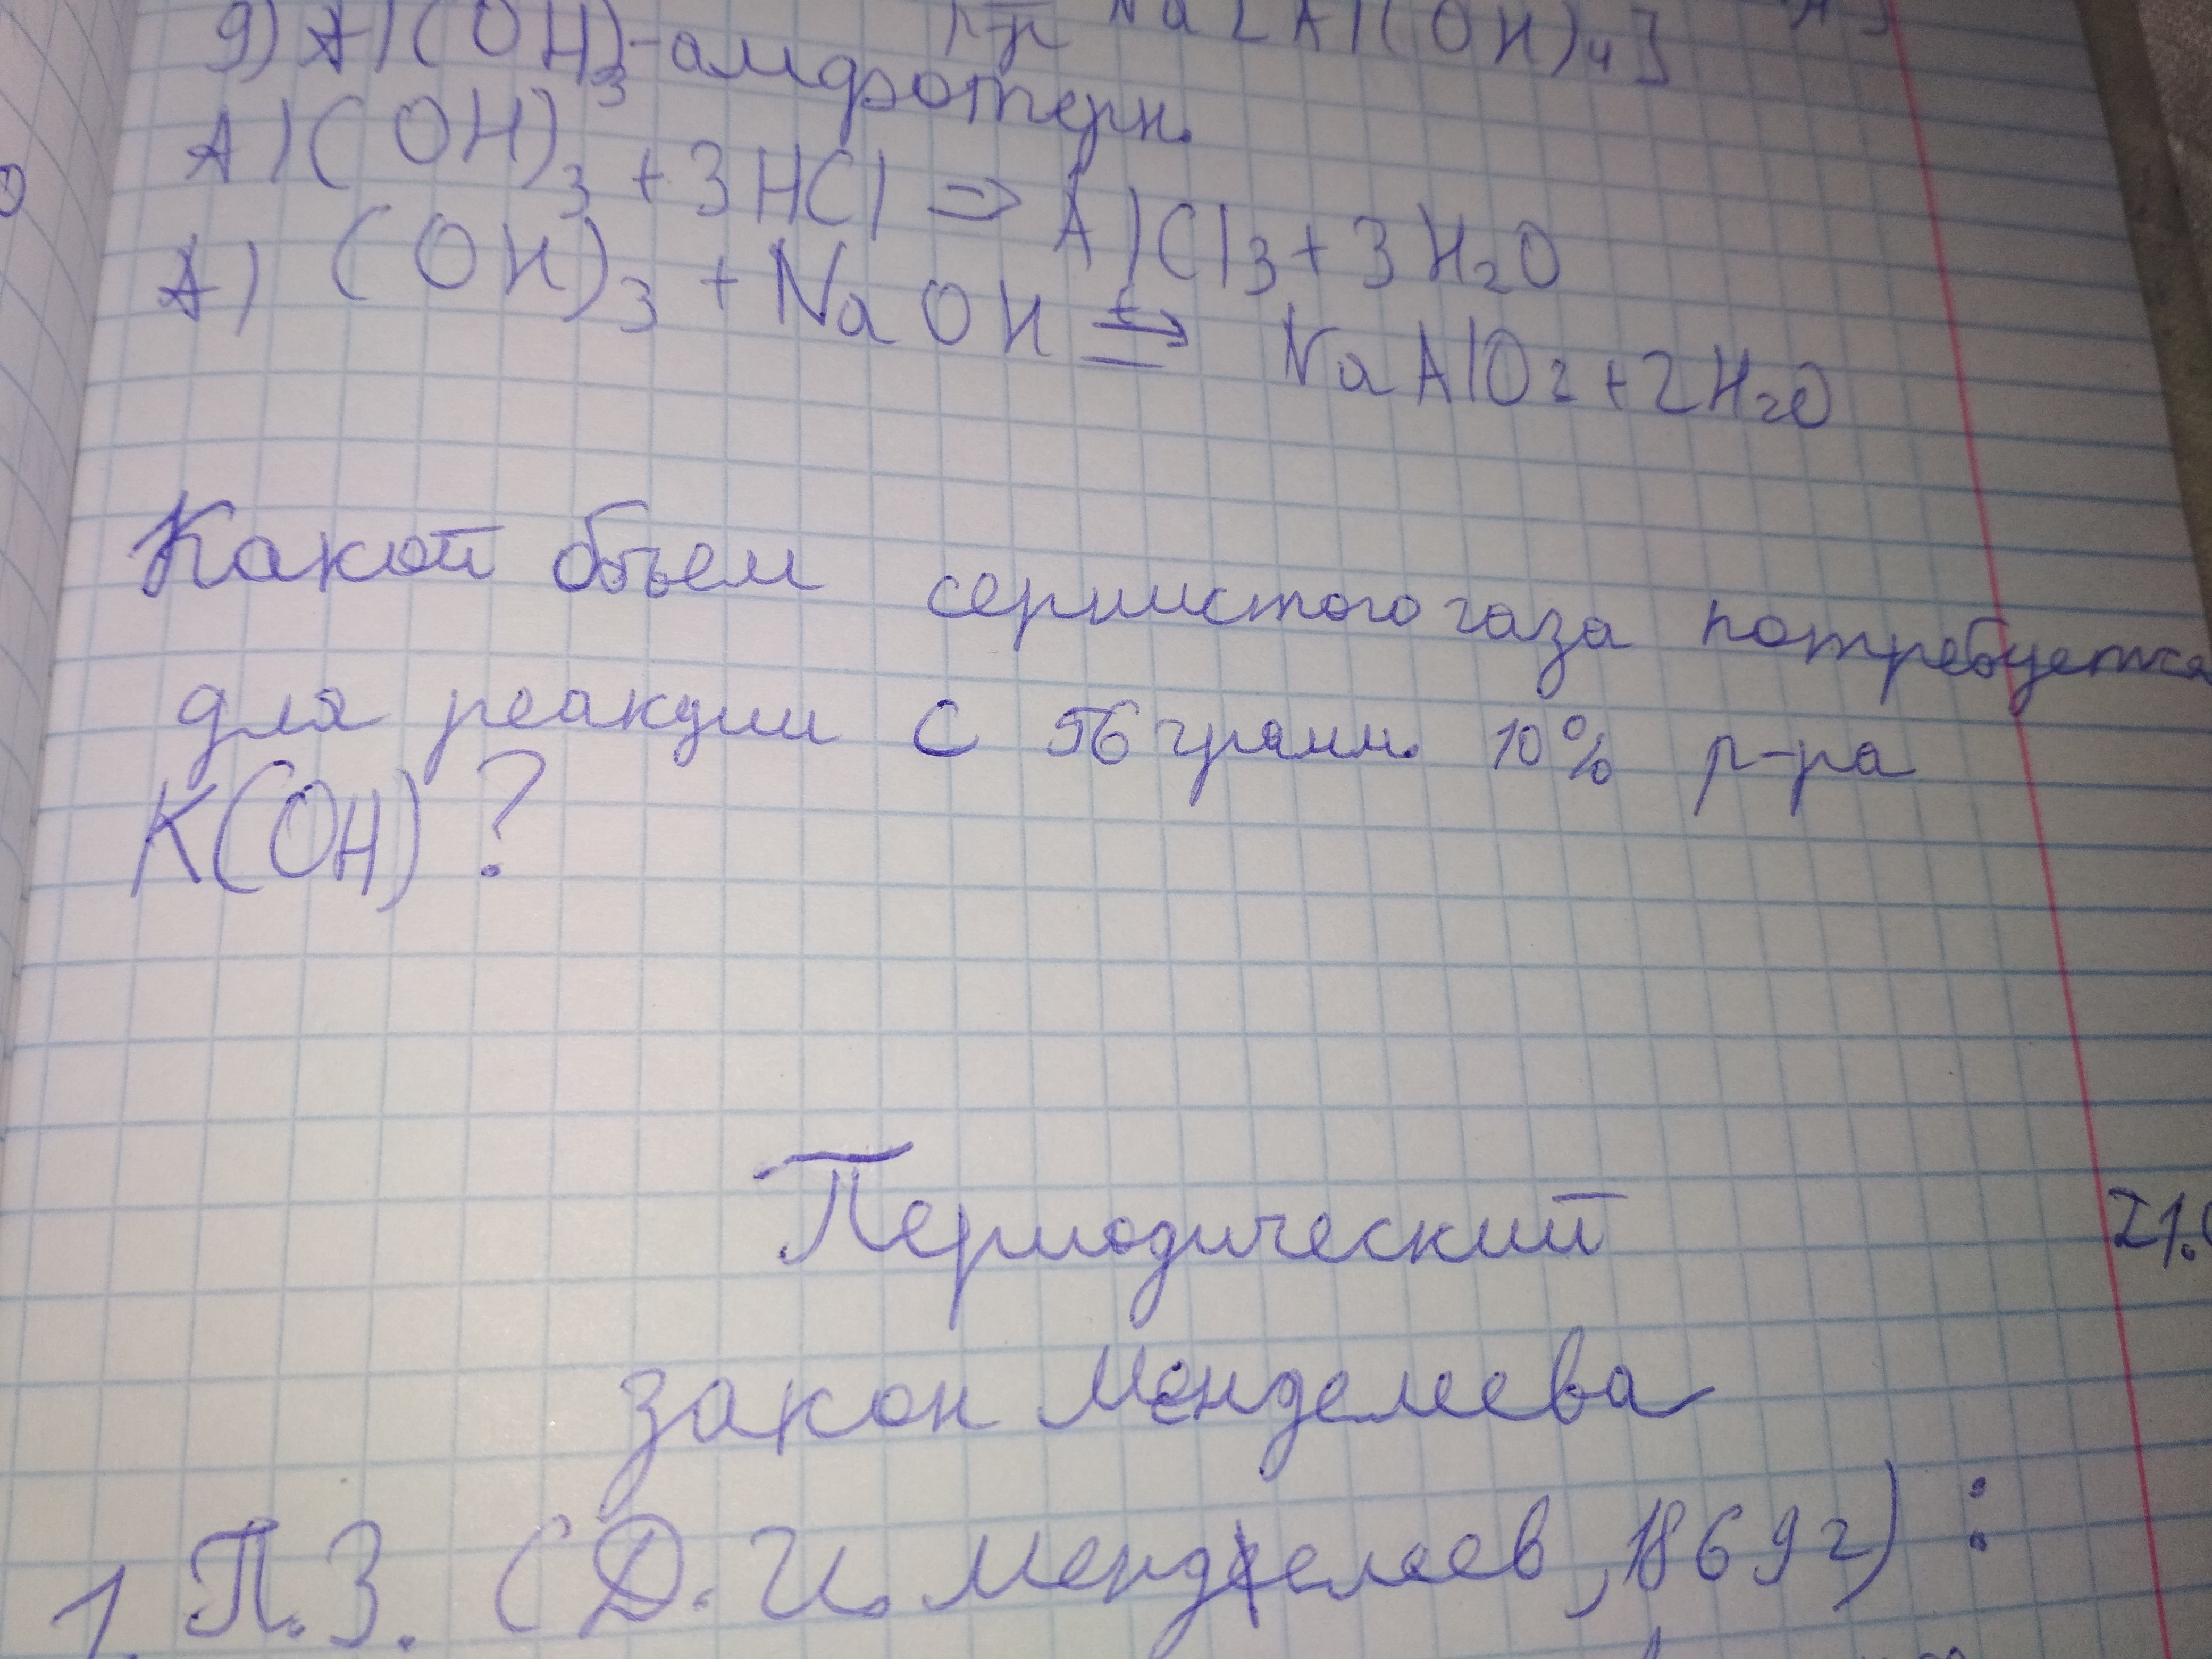 Na[Al(OH)4]
9) Al(OH)3 - амфотерн.
Al(OH)3 + 3HCl => AlCl3 + 3H2O
Al(OH)3 + NaOH t⇒ NaAlO2 + 2H2O
Какой объем сернистого газа потребуется
для реакции с 56 грамм. 10% р-ра
K(OH)?
Периодический
21.
закон Менделеева
1. П.З. (Д.И. Менделеев, 1869г) :